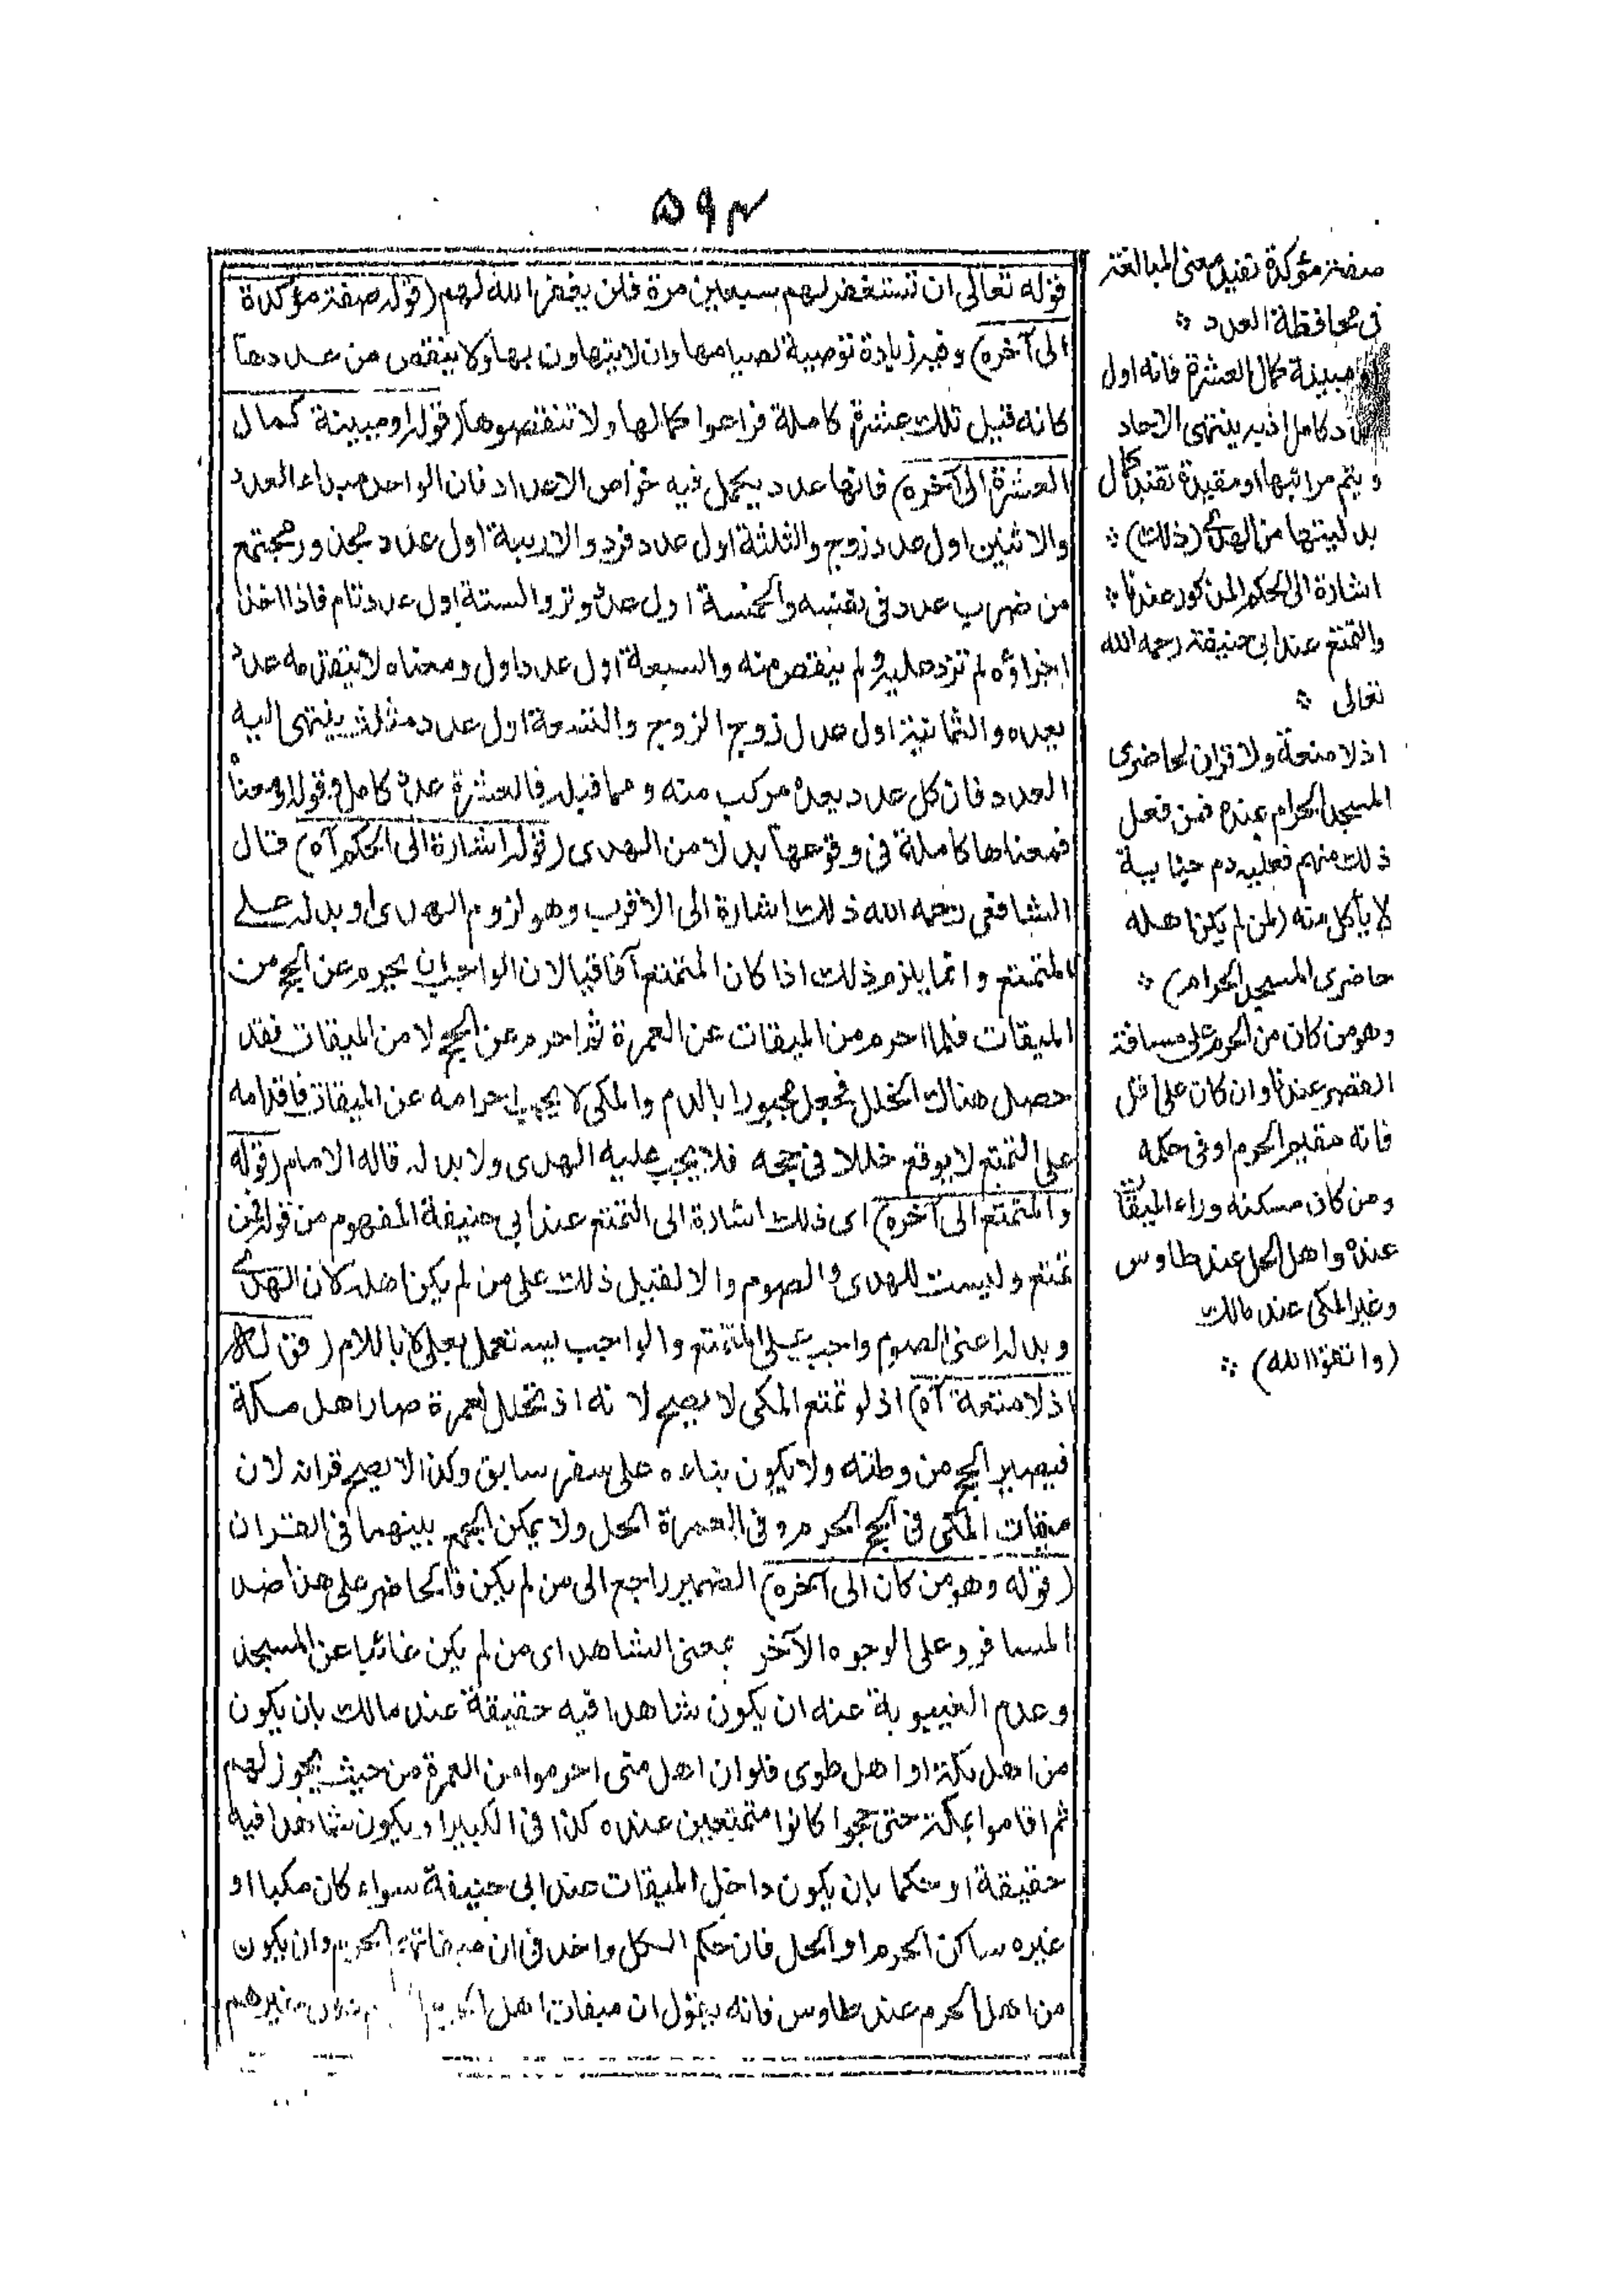 ۵۹۳
قوله تعالى ان تستغفر لهم سبعين مرة فلن يغفر الله لهم (قوله صفة مؤكدة
الى آخره) وفيه زيادة توصية لصيامها وان لا يتهاون بها ولا ينقص من عددها
كانه قيل تلك عشرة كاملة فراعوا كمالها ولا تنقصوها (قوله او مبينة كمال
العشرة الى آخره) فانها عدد يكمل فيه خواص الاعداد فان الواحد مبداء العدد
والاثنين اول عدد زوج والثلثة اول عدد فرد والاربعة اول عدد مجذور مجتمع
من ضرب عدد فى نفسه والخمسة اول عدد وتر والستة اول عدد تام فاذا اخذ
اجزاؤه لم تزد عليه ولم ينقص منه والسبعة اول عدد اول ومعناه لا يتقدمه عدد
بعده والثمانية اول عدد زوج الزوج والتسعة اول عدد مثلث ينتهى اليه
العدد فان كل عدد بعده مركب منه ومما قبله فالعشرة عدد كامل
فمعناها كاملة فى وقوعها بدلا من الهدى (قوله اشارة الى الحكم آه) قال
الشافعى رحمه الله ذلك اشارة الى الاقرب وهو لزوم الهدى او بدله على
المتمتع وانما يلزم ذلك اذا كان المتمتع آفاقيا لان الواجب ان يحرم عن الحج من
الميقات فلما احرم من الميقات عن العمرة ثم احرم عن الحج لا من الميقات فقد
حصل هناك الخلل فجعل مجبورا بالدم والمكى لا يجب احرامه عن الميقات فاقدامه
على التمتع لا يوقع خللا فى حجه فلا يجب عليه الهدى ولا بدله قاله الامام (قوله
والمتمتع الى آخره) اى ذلك اشارة الى التمتع عند ابى حنيفة المفهوم من قوله فمن
تمتع وليست للهدى والصوم والا لقيل ذلك على من لم يكن اهله لان الهدى
وبدله اعنى الصوم واجب على المتمتع والواجب يستعمل بعلى لا باللام (قوله
اذ لا متعة آه) اذ لو تمتع المكى لا يصح لانه اذ تحلل لعمرة صار اهل مكة
فيصير الحج من وطنه ولا يكون بناءه على سفر سابق وكذا لا يصح قرانه لان
ميقات المكى فى الحج الحرم وفى العمرة الحل ولا يمكن الجمع بينهما فى القران
(قوله وهو من كان الى آخره) الضمير راجع الى من لم يكن فالحاضر على هذا ضد
المسافر وعلى الوجوه الآخر بمعنى الشاهد اى من لم يكن غائبا عن المسجد
وعدم الغيبوبة عنه ان يكون شاهدا فيه حقيقة عند مالك بان يكون
من اهل مكة او اهل طوى فلو ان اهل منى احرموا من العمرة من حيث يجوز لهم
ثم اقاموا بمكة حتى حجوا كانوا متمتعين عنده كذا فى الكبير او يكون شاهدا فيه
حقيقة او حكما بان يكون داخل الميقات عند ابى حنيفة سواء كان مكيا او
غيره ساكن الحرم او الحل فان حكم الكل واحد فى ان ميقاتهم الحرم وان يكون
من اهل الحرم عند طاوس فانه يقول ان ميقات اهل
صفة مؤكدة تفيد معنى المبالغة
فى محافظة العدد *
او مبينة كمال العشرة فانه اول
عدد كامل اذ به ينتهى الاحاد
ويتم مراتبها او مقيدة تفيد كمال
بدليتها من الهدى (ذلك) *
اشارة الى الحكم المذكور عندنا *
والتمتع عند ابى حنيفة رحمه الله
تعالى *
اذ لا متعة ولا قران لحاضرى
المسجد الحرام عنده فمن فعل
ذلك منهم فعليه دم جناية
لا يأكل منه (لمن لم يكن اهله
حاضرى المسجد الحرام) *
وهو من كان من الحرم على مسافة
القصر عندنا وان كان على اقل
فانه مقيم الحرم او فى حكمه
ومن كان مسكنه وراء الميقات
عنده واهل الحل عند طاوس
وغير المكى عند مالك
(واتقوا الله) *